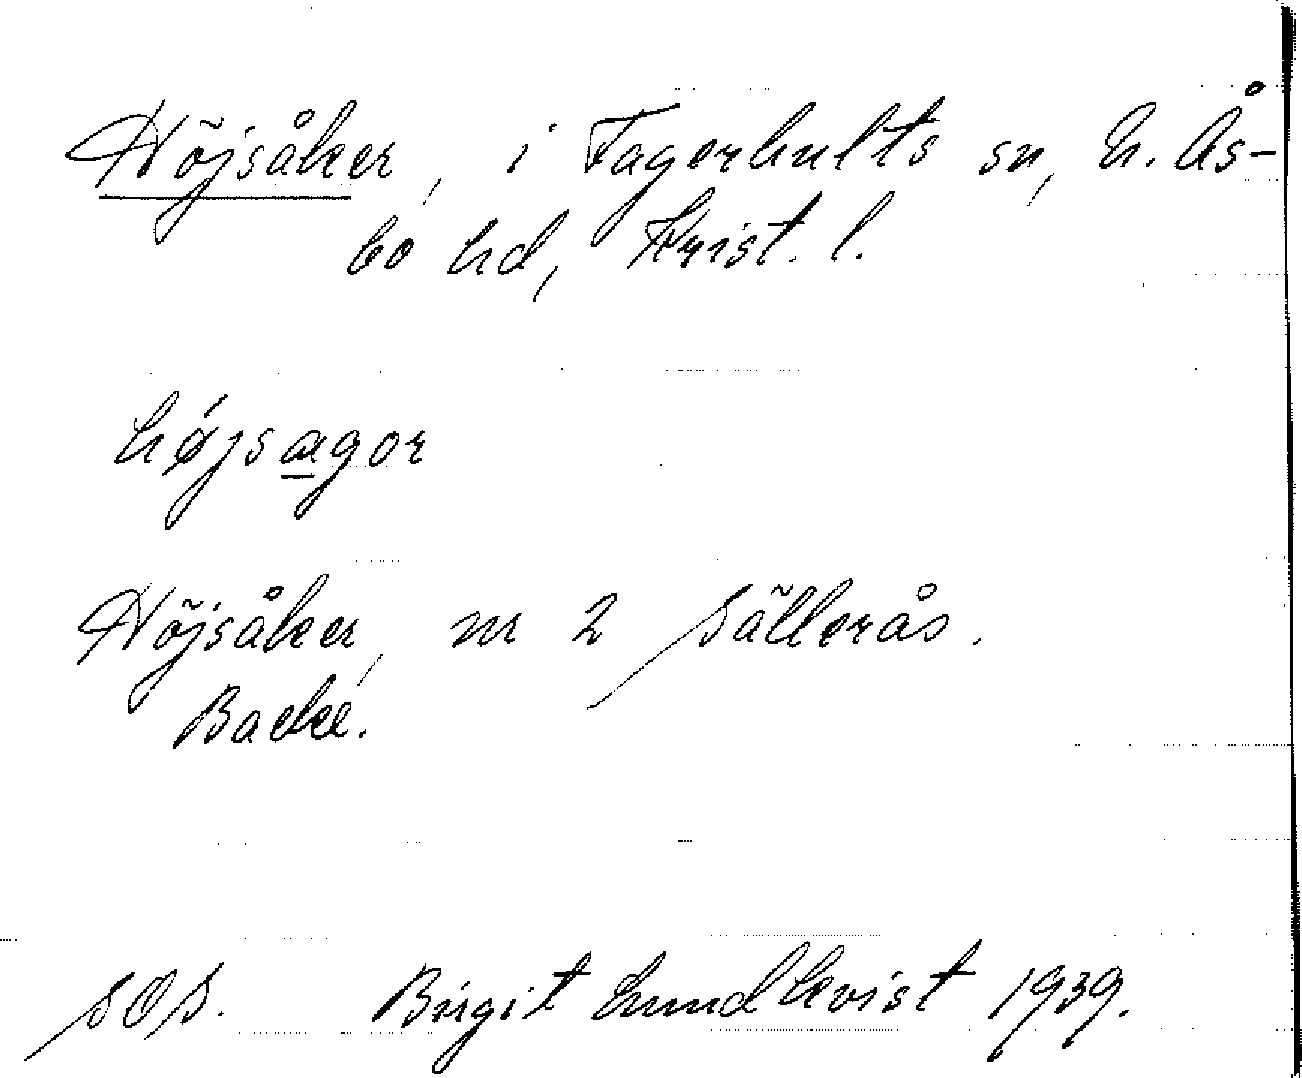 Höjsåker, i Fagerhults sn, N. Ås-
bo hd, Krist. l.
högjsagor
Höjsåker, nr 2 Sällerås.
Backe.
SOS. Birgit Lundkvist 1939.